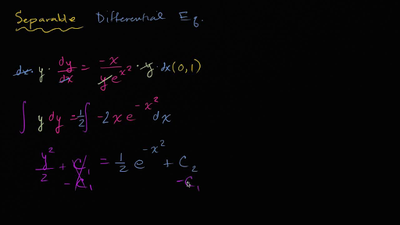 Separable Differential Eq.
dx · y · dy/dx = -x/(y e^(x^2)) · y · dx (0, 1)
∫ y dy = 1/2 ∫ -2x e^(-x^2) dx
y^2/2 + C_1 = 1/2 e^(-x^2) + C_2
- C_1 - C_1